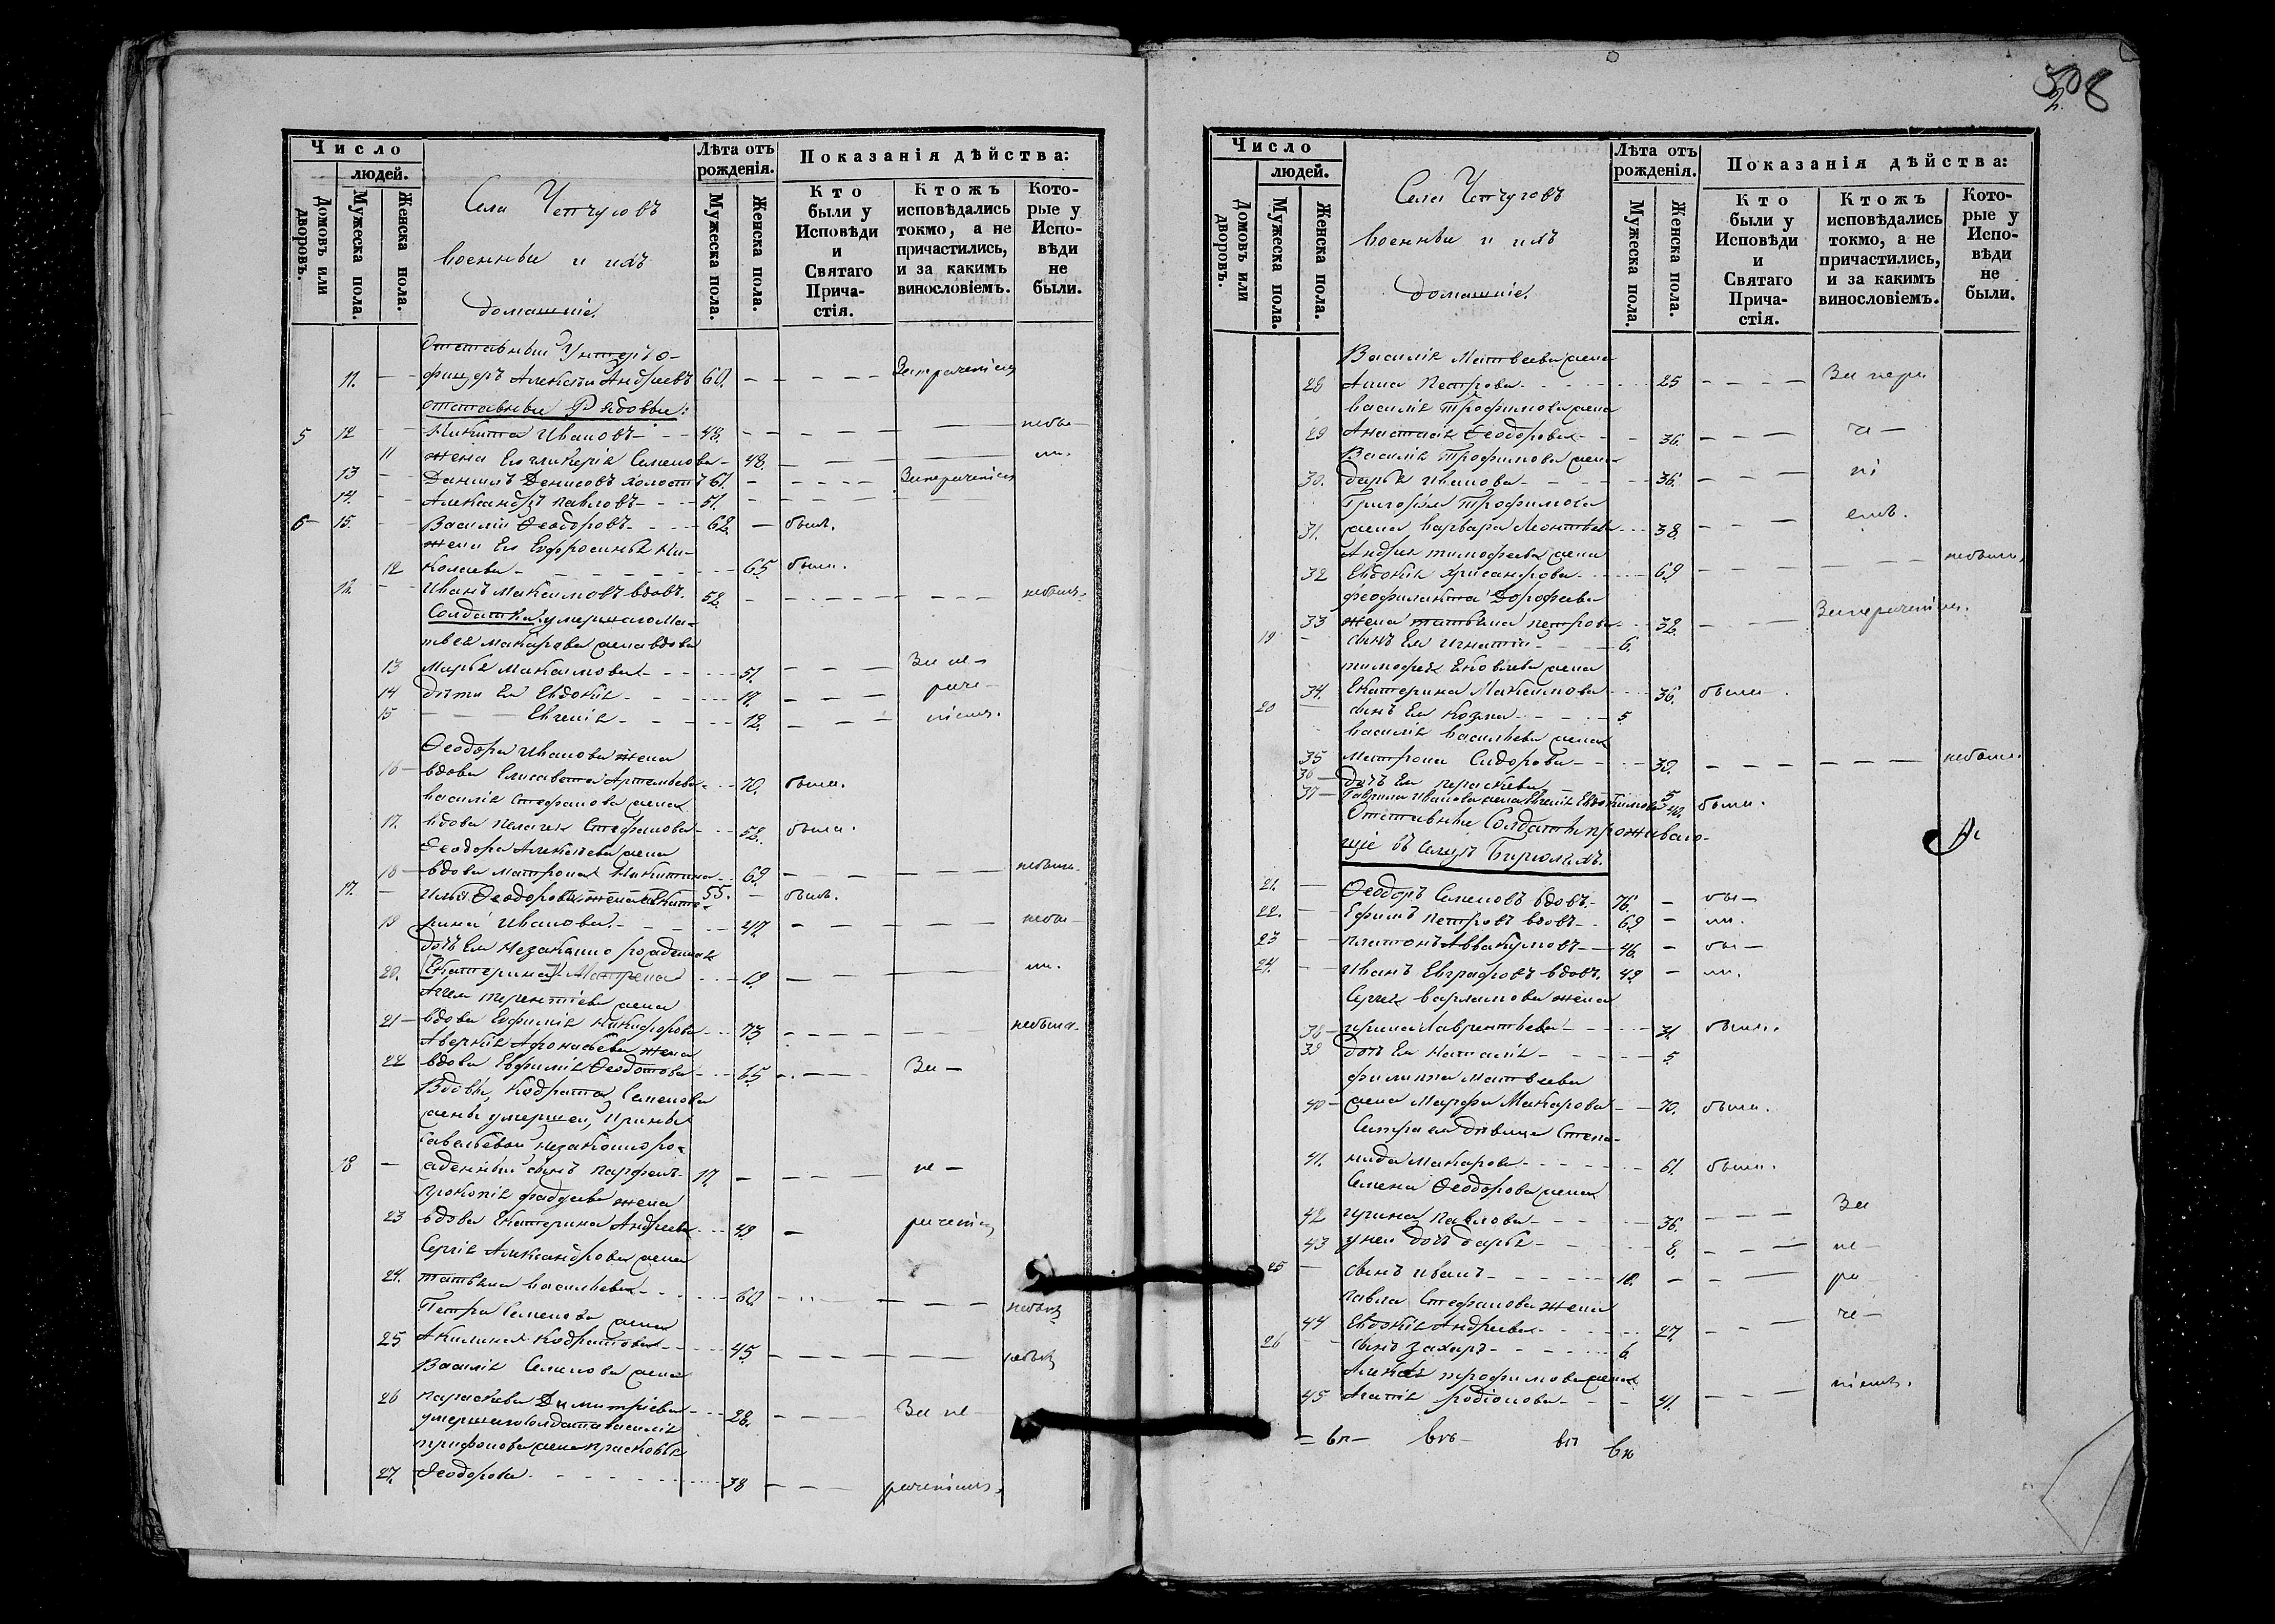 508
2.
Число
людей.
Домовъ или дворовъ.
Мужеска пола.
Женска пола.
Села Чепчуговъ
военные и ихъ
домашніе.
Лѣта отъ
рожденія.
Мужеска пола.
Женска пола.
Показанія дѣйства:
Кто
были у
Исповѣди
и
Святаго
Прича-
стія.
Ктожъ
исповѣдались
токмо, а не
причастились,
и за какимъ
винословіемъ.
Кото-
рые у
Испо-
вѣди
не
были.
Отставный Унтеръ о-
11. — фицеръ Алексѣй Андреевъ 60.
отставные Рядовые:
5 12 — Никита Ивановъ — 48. — небы—
11 жена Его Гликерія Семенова — 48. — ли.
13 — Даніилъ Денисовъ холостъ 61.
14. — Александръ Павловъ — 51.
6 15. — Василій Ѳеодоровъ — 62 — былъ.
жена Его Евфросинья Ни-
12 колаева — 65 была.
16. — Иванъ Максимовъ вдовъ. 52. — небылъ.
Солдатки: умершаго Ма-
твея Макарова жена вдова
13 Марья Максимова — 51. — За не—
14 дѣти Ея Евдокія — 17. — раче—
15 — Евгенія — 12. — ніемъ.
Ѳеодора Иванова жена
16 — вдова Елисавета Артемьева — 70. была.
Василія Стефанова жена
17. вдова Пелагія Стефанова — 52. была.
Ѳеодора Алексѣева жена
18 — вдова Матрона Никитина — 69. — небыла.
17. — Илья Ѳеодоровъ 55. — былъ.
19 рина Иванова — 47. — небы—
дочь Ея незаконно рожденная
20. Екатерина Матрена — 19. — ли.
Терентіева жена
21 — вдова Евфимія Никифорова — 73. — небыла.
Аверкія Афонасьева жена
22 вдова Евфимія Ѳедотова — 65 — За —
Вдовы, Кодрата Семенова
жены умершей, Ирины
Савельевой незаконноро-
18 — жденный сынъ Парфенъ — 17. — не —
Прокопія Фаддеева жена
23 вдова Екатерина Андреева — 49 — раченіемъ
Сергія Александрова жена
24. Татьяна Васильева — 60. — небыла
Петра Семенова жена
25 Акилина Кодратова — 45. — небыла
Василія Семенова жена
26 Параскева Димитріева — 28. — За не
умершаго солдата Василія
Трифонова жена Прасковья
27. Ѳеодорова — 38 — раченіемъ.
Число
людей.
Домовъ или дворовъ.
Мужеска пола.
Женска пола.
Села Чепчуговъ
военные и ихъ
домашніе.
Лѣта отъ
рожденія.
Мужеска пола.
Женска пола.
Показанія дѣйства:
Кто
были у
Исповѣди
и
Святаго
Прича-
стія.
Ктожъ
исповѣдались
токмо, а не
причастились,
и за какимъ
винословіемъ.
Кото-
рые у
Испо-
вѣди
не
были.
Василія Матвеева жена
28 Анна Петрова — 25 — За нера
Василія Трофимова жена
29 Анастасія Ѳеодорова — 36. — че —
Василія Трофимова жена
30. Дарья Иванова — 36. — ні
Григорія Трофимова
31. жена Варвара Леонтьева — 38. — емъ.
Андрея Тимофеева жена
32 Евдокія Хрисанфова — 69 — небыла.
Феофилакта Дорофеева
33 жена Татьяна Петрова — 32. — Занераченіемъ.
19 — сынъ Ея Игнатій — 6.
Тимофея Яковлева жена
34. Екатерина Максимова — 36. была.
20 — сынъ Ея Козма — 5
Василія Васильева жена
35 Матрона Сидорова — 30. — небыла.
36 — дочь Ея Параскева — 5
37 — Гаврила Иванова жена Евгенія Евдокимова 40. была.
Отставные Солдаты проживаю-
щіе въ сельцѣ Бирюляхъ.
21. — Ѳеодоръ Семеновъ вдовъ. 76. — бы—
22. — Ефимъ Петровъ вдовъ. 69 — ли.
23 — Платонъ Аввакумовъ — 46. — бы—
24. — Иванъ Евграфовъ вдовъ. 49 — ли.
Сергія Варламова жена
38 — Ирина Лаврентьева — 31. была.
39 дочь Ея Наталія — 5.
Филиппа Матвеева
40 — жена Марфа Макарова — 70. была.
Сестра ея дѣвица Степа-
41. нида Макарова — 61. была.
Семена Ѳеодорова жена
42 Ирина Павлова — 36. — За
43 у нея дочь Дарья — 8. — не—
25 — сынъ Иванъ — 10. — ра
Павла Стефанова жена
44 Евдокія Андреева — 27. — че—
26 — сынъ Захаръ — 6.
Алексѣя Трофимова жена
45 Агапія Родіонова — 41. — ніемъ.